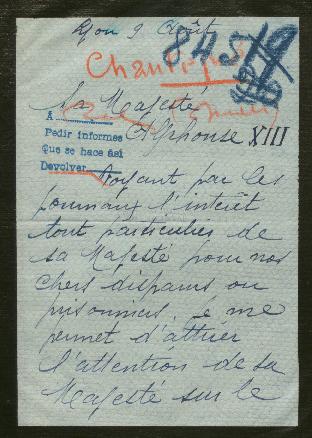 Lyon 9 Août
Sa Majesté
Alphonse XIII
A
Pedir informes
Que se hace así
Devolver
Voyant par les
journaux l'intérêt
tout particulier de
sa Majesté pour nos
chers disparus ou
prisonniers. Je me
permet d'attirer
l'attention de sa
Majesté sur le